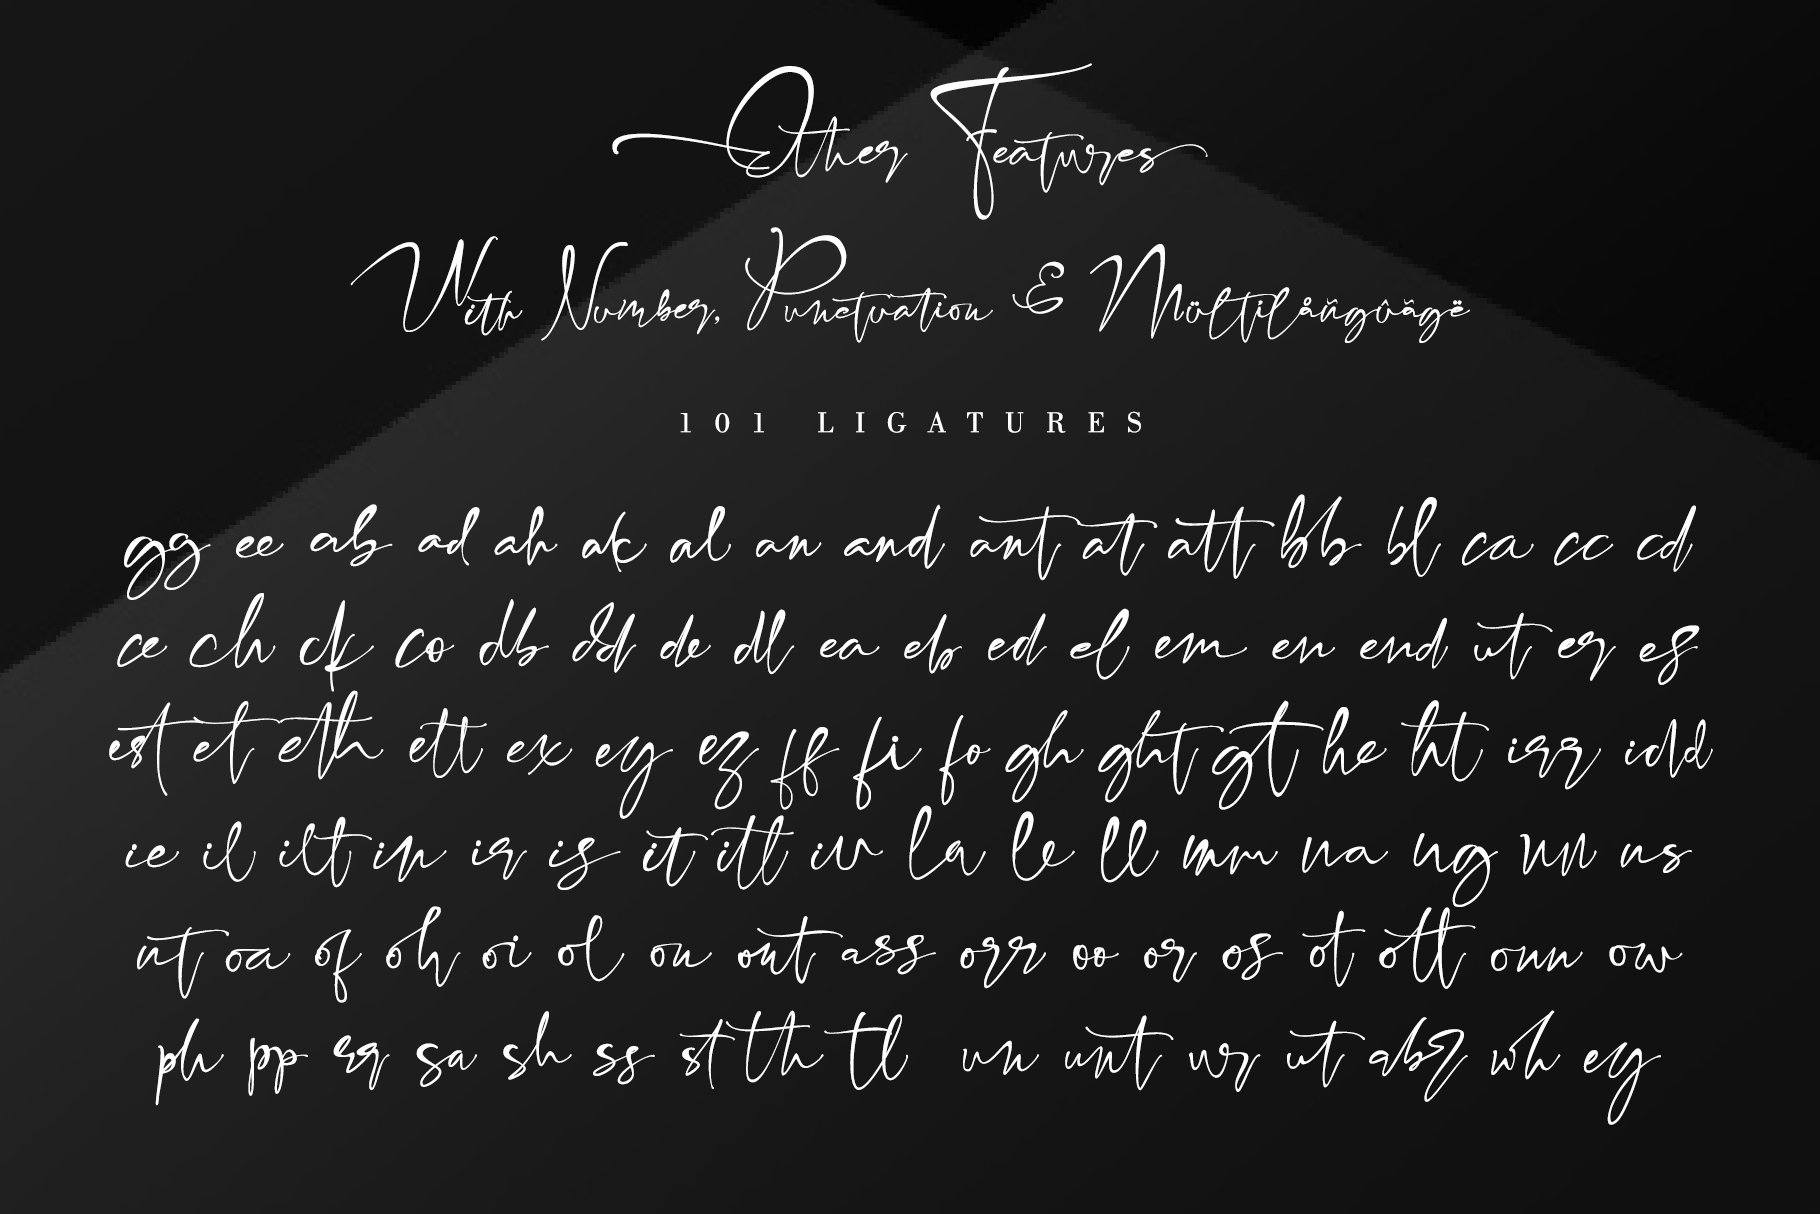 Other Features
With Number, Punctuation & Mültilåñgûãgë
101 LIGATURES
gg ee ab ad ah ak al an and ant at att bb bl ca cc cd
ce ch ck co db dd de dl ea eb ed el em en end ut er es
est et eth ett ex ey ez ff fi fo gh ght gt he ht irr idd
ie il ilt in ir is it itt iv la le ll mm na ng nn ns
nt oa of oh oi ol on ont ass orr oo or os ot ott onn ow
ph pp rr sa sh ss st th tl un unt ur ut abr wh ey